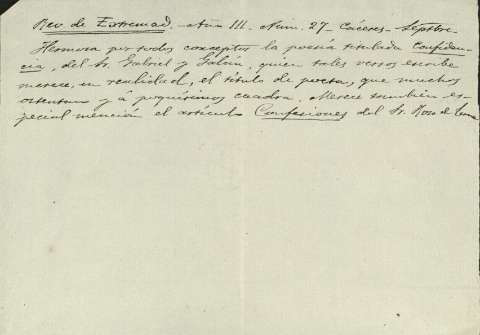 Rev de Extremad. - Año III. Núm. 27 - Cáceres - Septbre
Hermosa por todos conceptos la poesía titulada Confiden-
cia, del Sr. Gabriel y Galán, quien tales versos escribe
merece, en realidad, el título de poeta, que muchos
ostentan y á poquísimos cuadra. Merece también es-
pecial mención el artículo Confesiones del Sr. Roso de Luna